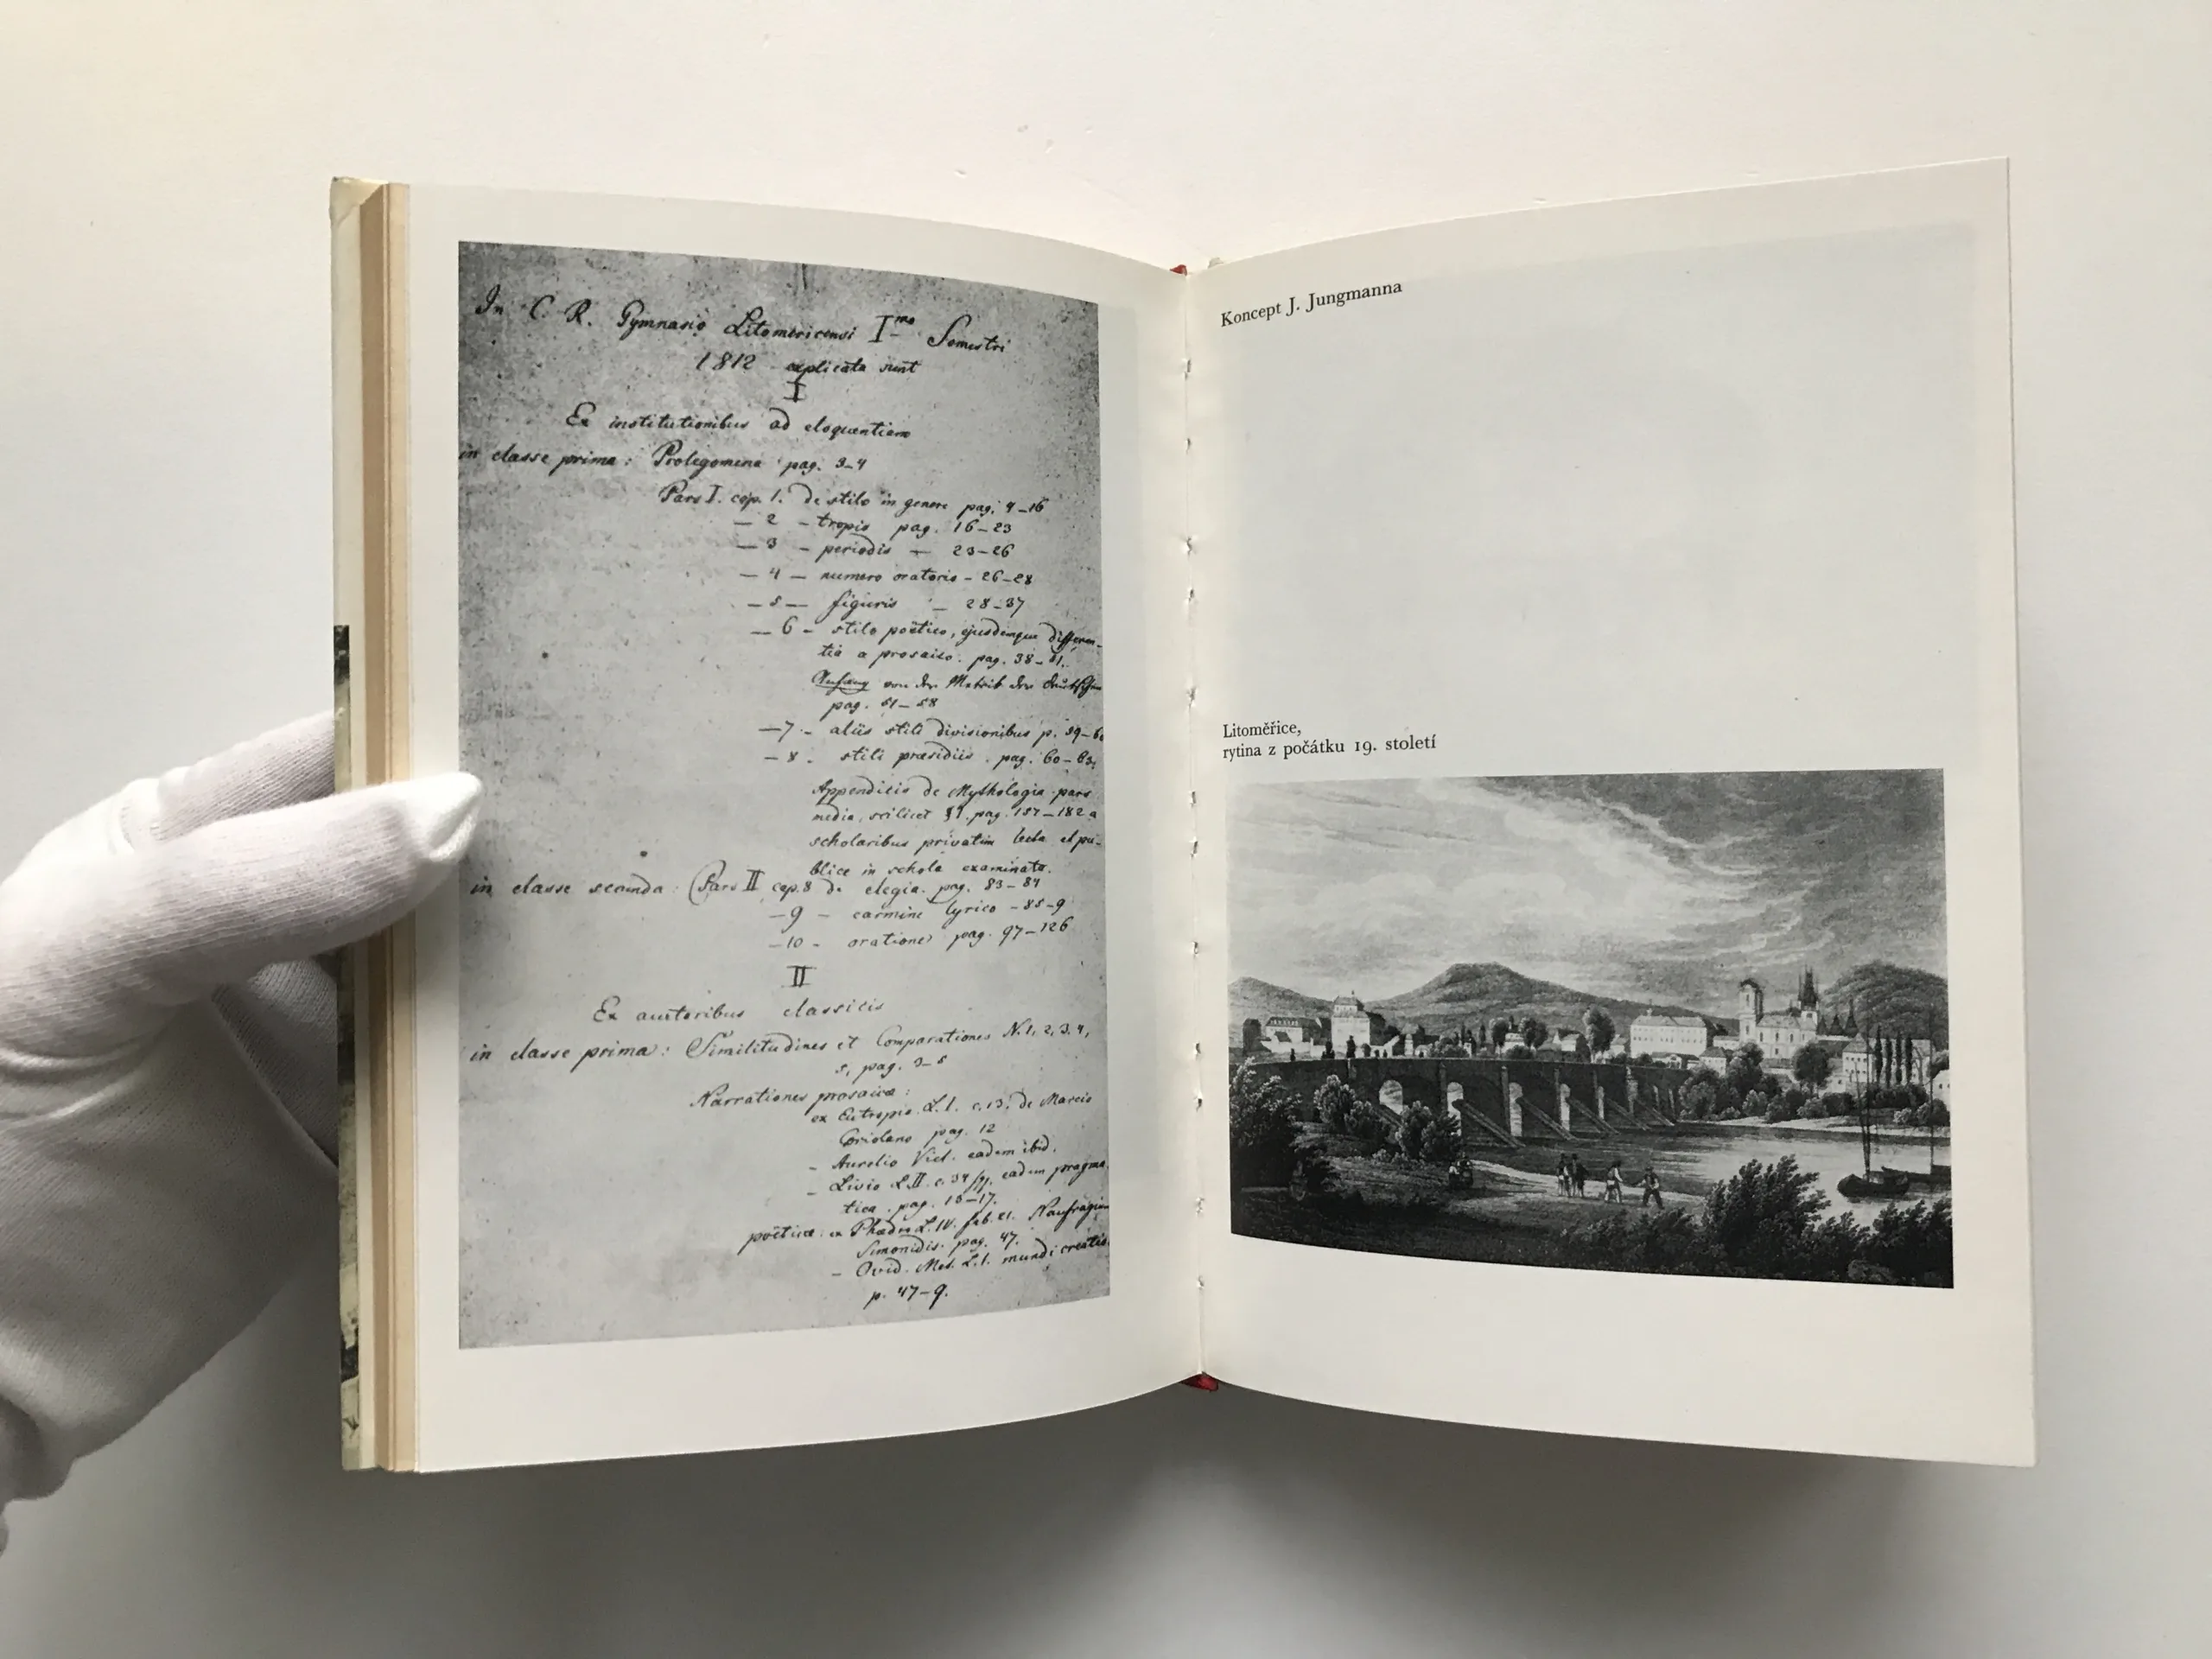 In C. R. Gymnasio Litomericensi I^mo Semestri
1812 explicata sunt
I
Ex institutionibus ad eloquentiam
in classe prima: Prolegomena pag. 3-4
Pars I. cap. 1. de stilo in genere pag. 4-16
— 2 - tropis pag. 16-23
— 3 - periodis — 23-26
— 4 — numero oratorio - 26-28
— 5 — figuris — 28-37
— 6 - stilo poëtico, ejusdemque differen-
tia a prosaico. pag. 38-51.
von der Metrik der deutschen
pag. 51-58
— 7 - aliis stili divisionibus p. 59-60
— 8 . stili præsidiis . pag. 60-63,
Appendicis de Mythologia pars
media, scilicet §1. pag. 157-182 a
scholaribus privatim lecta et pu-
blice in schola examinata.
in classe secunda: Pars II cap. 8 de elegia. pag. 83-84
— 9 — carmine lyrico - 85-9
— 10 - oratione pag. 97-126
II
Ex auctoribus classicis
in classe prima: Similitudines et Comparationes N. 1, 2, 3, 4,
5, pag. 3-5
Narrationes prosaicæ:
ex Eutropio L. I. c. 13. de Marcio
Coriolano pag. 12
- Aurelio Vict. eadem ibid.
- Livio L. II. c. 34 eadem pragma
tica . pag. 13-17.
poëticæ: ex Phædro L. IV. fab. 21. Naufragium
Simonidis. pag. 47.
- Ovid. Met. L. I. mundi creatio.
p. 47-9.
Koncept J. Jungmanna
Litoměřice,
rytina z počátku 19. století